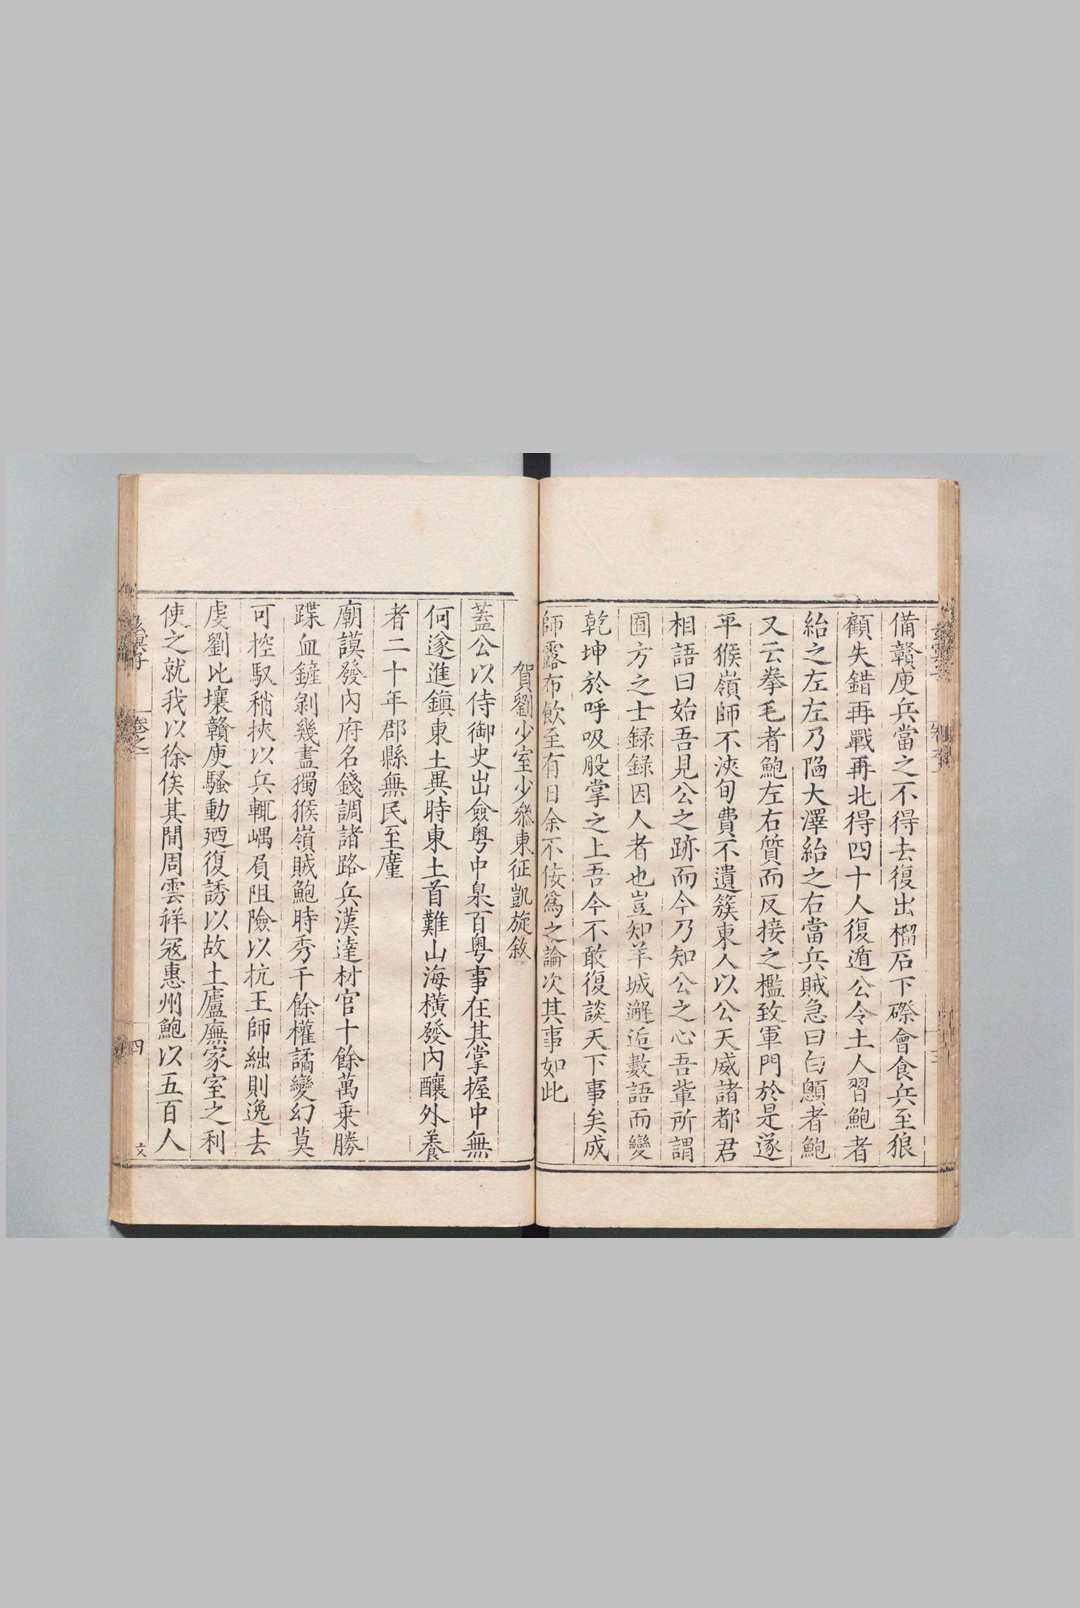 備贛庾兵當之不得去復出橊后下磜會食兵至狼
顧失錯再戰再北得四十人復遁公令土人習鮑者
紿之左左乃陷大澤紿之右當兵賊急曰白顫者鮑
又云拳毛者鮑左右質而反接之檻致軍門於是遂
平猴嶺師不浹旬費不遺簇東人以公天威諸都君
相語曰始吾見公之跡而今乃知公之心吾輩所謂
圓方之士録録因人者也豈知羊城邂逅數語而變
乾坤於呼吸股掌之上吾今不敢復談天下事矣成
師露布飲至有日余不佞爲之論次其事如此
賀劉少室少叅東征凱旋敘
蓋公以侍御史出僉粤中臬百粤事在其掌握中無
何遂進鎮東土異時東土首難山海横發內釀外養
者二十年郡縣無民至廑
廟謨發內府名錢調諸路兵漢達材官十餘萬乗勝
蹀血鏟剝幾盡獨猴嶺賊鮑時秀千餘權譎變幻莫
可控馭稍挾以兵輒嵎屓阻險以抗王師絀則逸去
虔劉比壤贛庾騷動廼復誘以故土廬廡家室之利
使之就我以徐俟其間周雲祥寇惠州鮑以五百人
卷之一
四
文